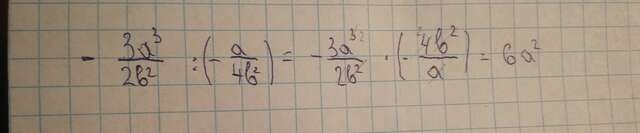 - 3a³/2b² : (- a/4b²) = - 3a³²/2b² · (- 4b²/a) = 6a²